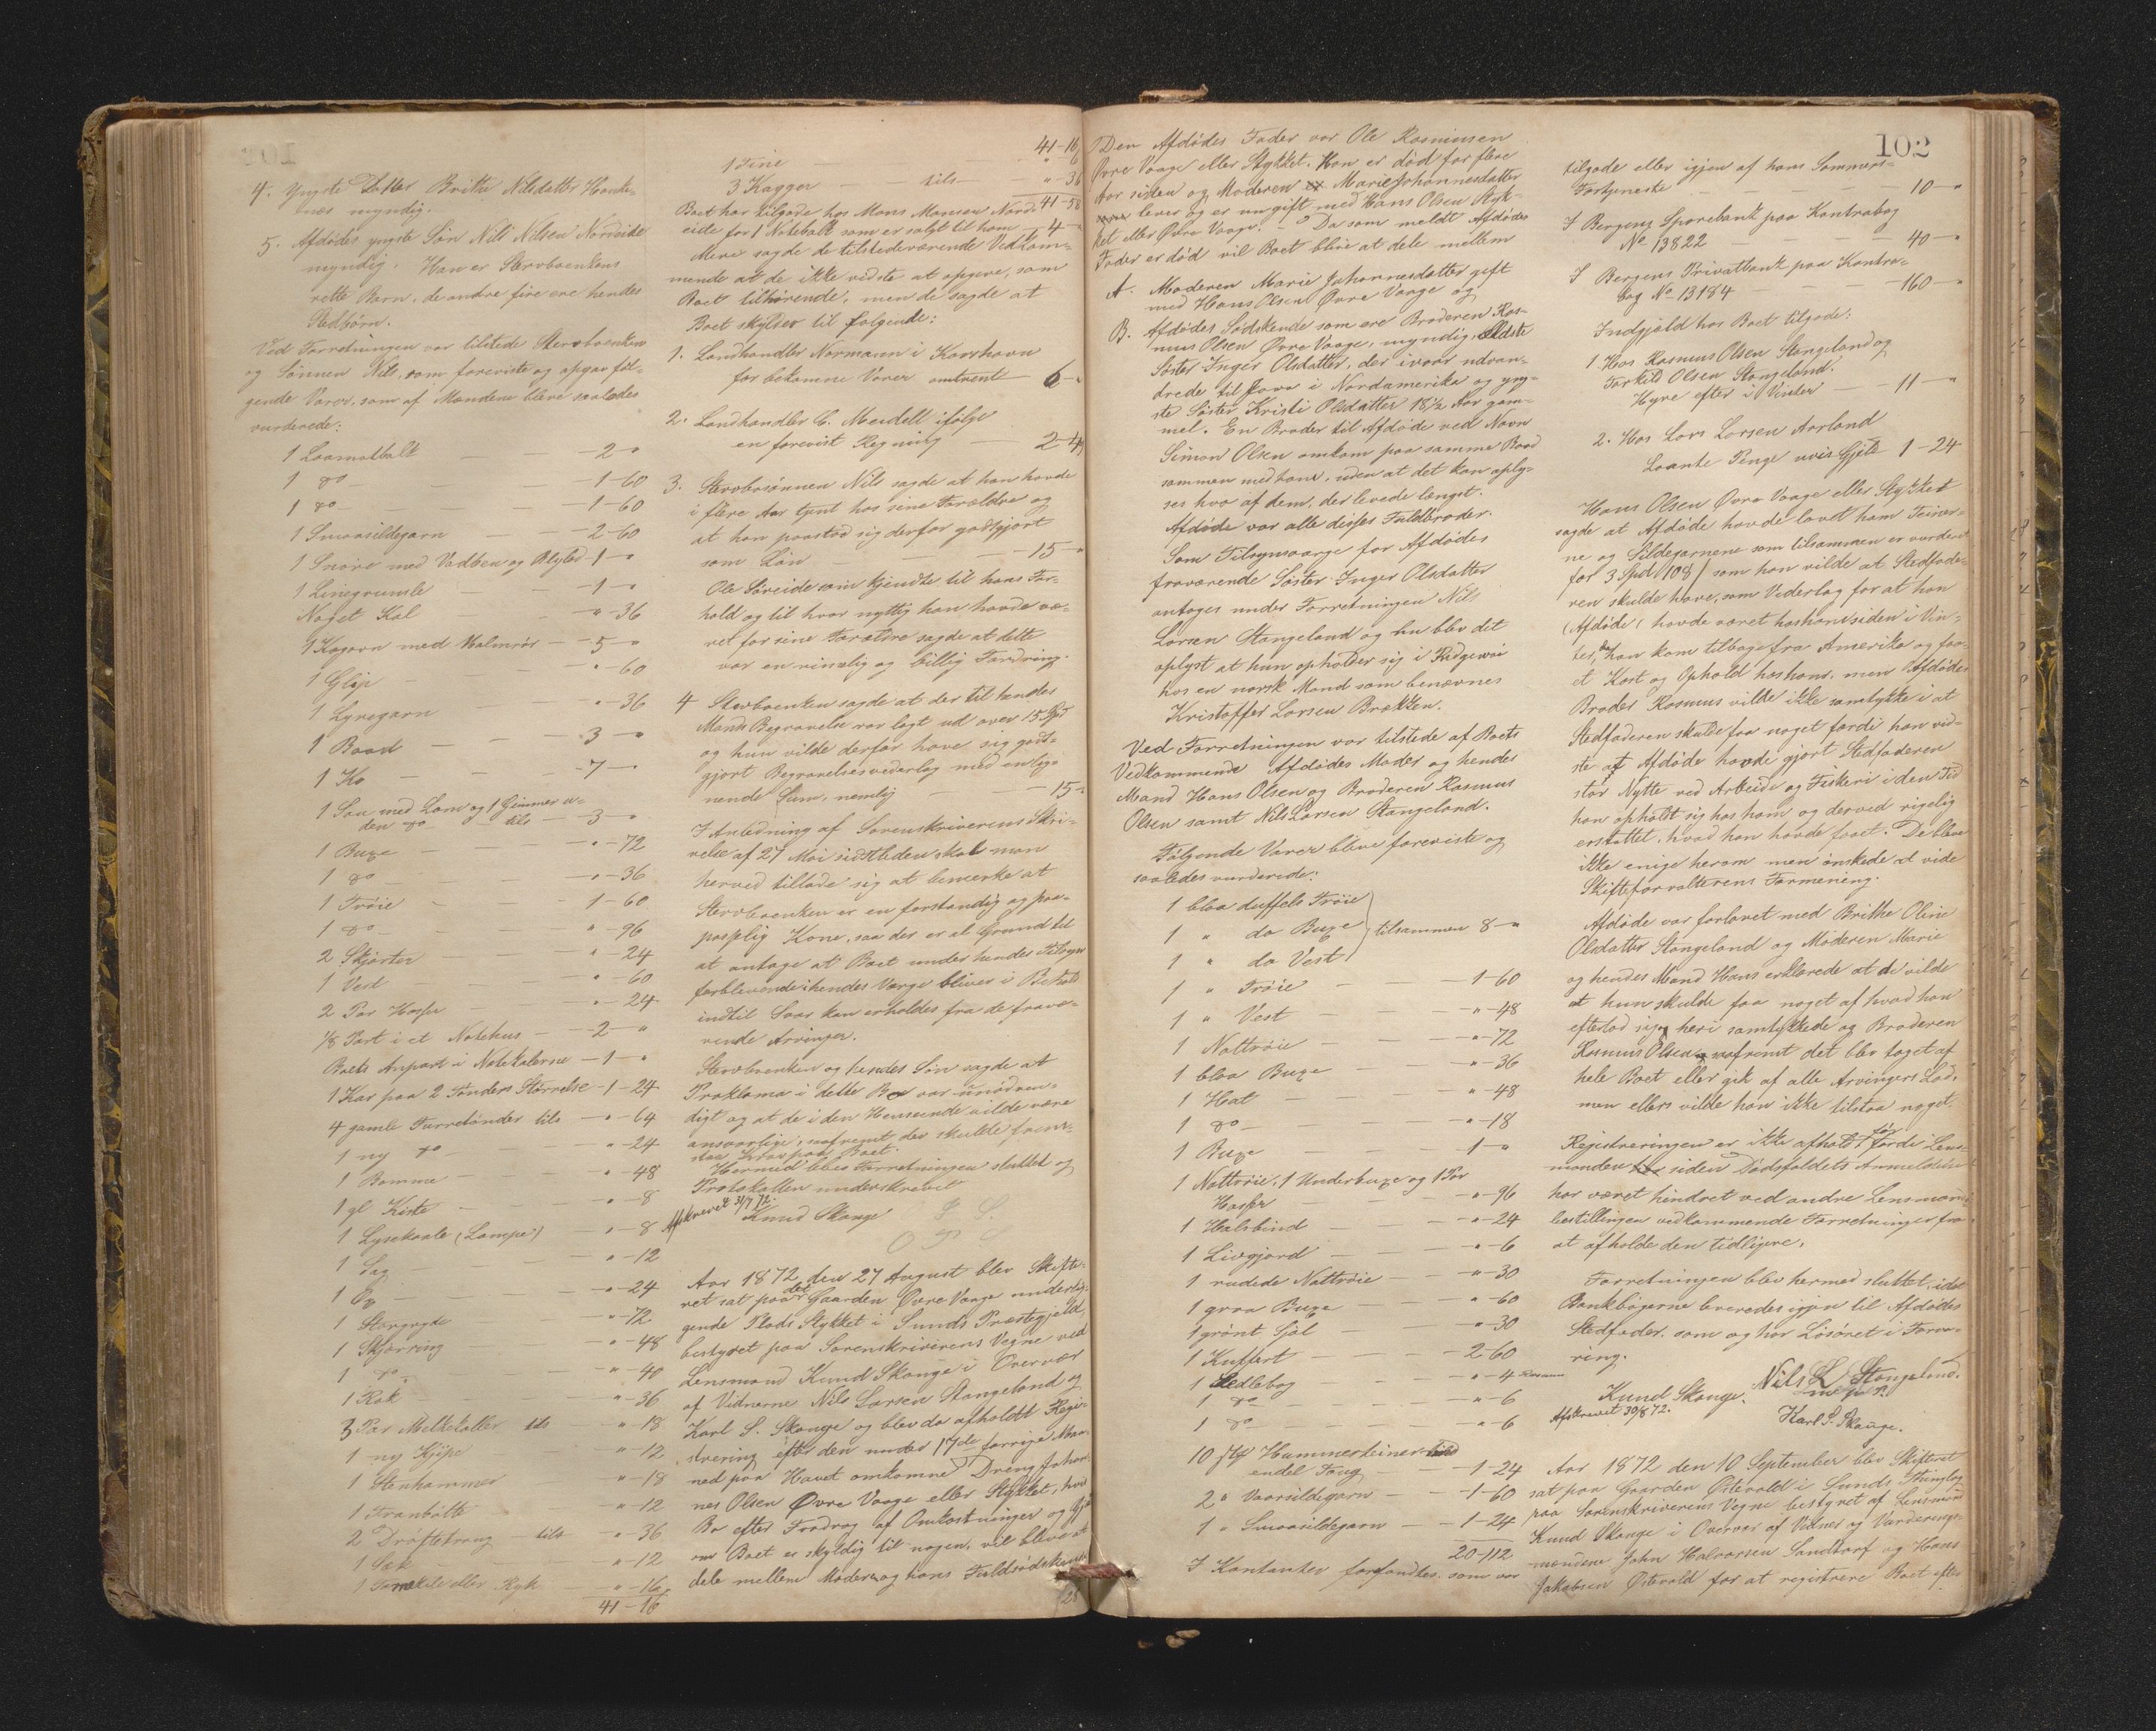 4. Yngste Datter Britta Nilsdatter Hauke-
næs myndig.
5. Afdødes yngste Søn Nils Nilsen Nordeide
myndig. Han er Stervboenkens
rette Barn, de andre fire ere hendes
Stedbørn.
Ved Forretningen var tilstede Stervboenken
og Sønnen Nils, som foreviste og opgav føl-
gende Varer, som af Mændene bleve saaledes
vurderede:
1 Laamotbalk — — 2 - "
1 do — — 1-60
1 do — — 1-60
1 Smaasildegarn — — 2-60
1 Snøre med Vadben og Blylod — 1 - "
1 Linegrumle — — 1 - "
Noget Kal — — "-36
1 Kogovn med Malmrør — — 5 - "
1 Glip — — "-60
1 Lyregarn — — "-36
1 Baad — — 3 - "
1 Ko — — 7 - "
1 Sau med Lam og 1 Gimmer u-
den do — tils — 3 - "
1 Buxe — — "-72
1 do — — "-36
1 Trøie — — 1-60
1 do — — "-96
2 Skjorter — — "-24
1 Vest — — "-60
2 Par Hoser — — "-24
1/8 Part i et Notehus — — 2 - "
Boets Anpart i Notekalerne — 1 - "
1 Kar paa 2 Tønders Størrelse — 1-24
4 gamle Tørretønder tils — "-64
1 ny do — — "-24
1 Bomme — — "-48
1 gl Kiste — — "-8
1 Lysekaale (Lampe) — "-8
1 Sag — — "-12
1 Øx — — "-24
1 Stangryde — — "-72
1 Skjærring — — "-48
1 do — — "-40
1 Rok — — "-36
3 Par Melkekoller tils "-18
1 ny Kjipe — — "-12
1 Stenhammer "-18
1 Tranbøtte — "-12
2 Drøftetroug tils — "-36
1 Sæk — — "-12
1 eller Ryk — "-16
41-16
41-16
1 Tine — — "-6
3 Kagger — tils — "-36
41-58
Boet har tilgode hos Mons Monsen Nord-
eide for 1 Notebalk som er solgt til ham — 4 - "
Mere sagde de tilstedeværende Vedkom-
mende at de ikke vidste at opgive, som
Boet tilhørende, men de sagde at
Boet skylder til følgende:
1. Landhandler Normann i Korshavn
for bekomne Varer omtrent — 6 - "
2. Landhandler C. Mendell ifølge
en forevist Regning — 2-4
3. Stervbosønnen Nils sagde at han havde
i flere Aar tjent hos sine Forældre og
at han paastod sig derfor godtgjort
som Løn — — 15 - "
Ole Søreide som kjendte til hans For-
hold og til hvor nyttig han havde væ-
ret for sine Forældre sagde at dette
var en rimelig og billig Fordring.
4 Stervboenken sagde at der til hendes
Mands Begravelse var lagt ud over 15 Spd
og hun vilde derfor have sig godt-
gjort Begravelsesvederlag med en lig-
nende Sum, nemlig — — 15 - "
I Anledning af Sorenskriverens Skri-
velse af 27 Mai sidstleden skal man
herved tillade sig at bemærke at
Stervboenken er en forstandig og paa-
passelig Kone, saa der er al Grund til
at antage at Boet under hendes Tilsyn
forblevende i hendes Værge bliver i Behold
indtil Svar kan erholdes fra de fravæ-
rende Arvinger.
Stervboenken og hendes Søn sagde at
Proklama i dette Bo var unødven-
digt og at de i den Henseende vilde være
ansvarlige, saafremt der skulde frem-
staa Krav paa Boet.
Hermed blev Forretningen sluttet og
Protokollen underskrevet
Afskrevet 31/7 72.
Knud Skauge
Aar 1872 den 27 August blev Skifte-
ret sat paa det Gaarden Øvre Vaage underlig-
gende Plads Stykket i Sunds Præstegjeld,
bestyret paa Sorenskriverens Vegne ved
Lensmand Knud Skauge i Overvær
af Vidnerne Nils Larsen Stangeland og
Karl S. Skauge og blev da afholdt Regi-
strering efter den under 17de forrige Maa-
ned paa Havet omkomne Dreng Johan-
nes Olsen Øvre Vaage eller Stykket, hvis
Bo efter Fradrag af Omkostninger og Gjæld
om Boet er skyldig til nogen, vil blive at
dele mellem Moderen og hans Fuldsødskende
28
102
Den Afdødes Fader var Ole Rasmussen
Øvre Vaage eller Stykket. Han er død for flere
Aar siden og Moderen er Marie Johannesdatter
lever og er nu gift med Hans Olsen Styk-
ket eller Øvre Vaage. – Da som meldt Afdødes
Fader er død vil Boet blive at dele mellem
A. Moderen Marie Johannesdatter gift
med Hans Olsen Øvre Vaage og
B. Afdødes Sødskende som ere Broderen Ras-
mus Olsen Øvre Vaage, myndig, ældste
Søster Inger Olsdatter, der ivaar udvan-
drede til Iowa i Nordamerika og yng-
ste Søster Kristi Olsdatter 18 1/2 Aar gam-
mel. En Broder til Afdøde ved Navn
Simon Olsen omkom paa samme Baad
sammen med ham, uden at det kan oply-
ses hvo af dem, der levede længst.
Afdøde var alle disses Fuldbroder.
Som Tilsynsværge for Afdødes
fraværende Søster Inger Olsdatter
antoges under Forretningen Nils
Larsen Stangeland og nu blev det
oplyst at hun opholder sig i Ridgewai
hos en norsk Mand som benævnes
Kristoffer Larsen Brækken.
Ved Forretningen var tilstede af Boets
Vedkommende Afdødes Moder og hendes
Mand Hans Olsen og Broderen Rasmus
Olsen samt Nils Larsen Stangeland.
Følgende Varer bleve foreviste og
saaledes vurderede:
1 blaa duffels Trøie
1 " do Buxe tilsammen 8 - "
1 " do Vest
1 " Trøie — — 1-60
1 " Vest — — "-48
1 Nattrøie — — "-72
1 blaa Buxe — — "-36
1 Hat — — "-48
1 do — — "-18
1 Buxe — — 1 - "
1 Nattrøie, 1 Underbuxe og 1 Par
Hoser — — "-96
1 Halsbind — — "-24
1 Livgjord — — "-6
1 rudede Nattrøie — — "-30
1 graa Buxe — — "-60
1 grønt Sjal — — "-30
1 Kuffert — — 2-60
1 Sedlebog — — "-4
1 do — — "-6
1 do — — "-6
10 Stk Hummerteiner med
endel Toug — — 1-24
2 " Vaarsildegarn — — 1-60
1 " Smaasildegarn — — 1-24
20-112
I Kontanter forfandtes, som var
tilgode eller igjen af hans Sommer-
Fortjeneste — — 10 - "
I Bergens Sparebank paa Kontrabog
No 13822 — — 40 - "
I Bergens Privatbank paa Kontra-
bog No 13184 — — 160 - "
Indgjæld hos Boet tilgode:
1. Hos Rasmus Olsen Stangeland og
Torkild Olsen Stangeland.
Hyre efter i Vinter — — 11 - "
2. Hos Lars Larsen Aarland
Laante Penge 1-24
Hans Olsen Øvre Vaage eller Stykket
sagde at Afdøde havde lovet ham Teiner-
ne og Sildegarnene som tilsammen er vurderet
for 3 Spd 108 s som han vilde at Stedfade-
ren skulde have, som Vederlag for at han
(Afdøde) havde været hos ham siden i Vin-
ter, da han kom tilbage fra Amerika og faa-
et Kost og Ophold hos ham, men Afdødes
Broder Rasmus vilde ikke samtykke i at
Stedfaderen skulde faa noget fordi han vid-
ste at Afdøde havde gjort Stedfaderen
stor Nytte ved Arbeide og Fiskeri i den Tid
han opholdt sig hos ham og derved rigelig
erstattet, hvad han havde faaet. De bleve
ikke enige herom men ønskede at vide
Skifteforvalterens Formening.
Afdøde var forlovet med Brithe Oline
Olsdatter Stangeland og Moderen Marie
og hendes Mand Hans erklærede at de vilde
at hun skulde faa noget af hvad han
efterlod sig, heri samtykkede og Broderen
Rasmus Olsen saafremt det blev taget af
hele Boet eller gik af alle Arvingers Lod,
men ellers vilde han ikke tilstaa noget.
Registreringen er ikke afholdt før fordi Lens-
manden siden Dødsfaldets Anmeldelse
har været hindret ved andre Lensmands-
bestillingen vedkommende Forretninger fra
at afholde den tidligere.
Forretningen blev hermed sluttet, idet
Bankbøgerne leveredes igjen til Afdødes
Stedfader, som og har Løsøret i Forva-
ring.
Knud Skauge.
Nils L. Stangeland.
m. p. P.
Afskrevet 30/8 72.
Karl S. Skauge.
Aar 1872 den 10 September blev Skifteret
sat paa Gaarden Østevold i Sunds Thinglag
paa Sorenskriverens Vegne bestyret af Lensmand
Knud Skauge i Overvær af Vidner og Vurderings-
mændene John Halvorsen Sandtorf og Hans
Jakobsen Østevold for at registrere Boet efter